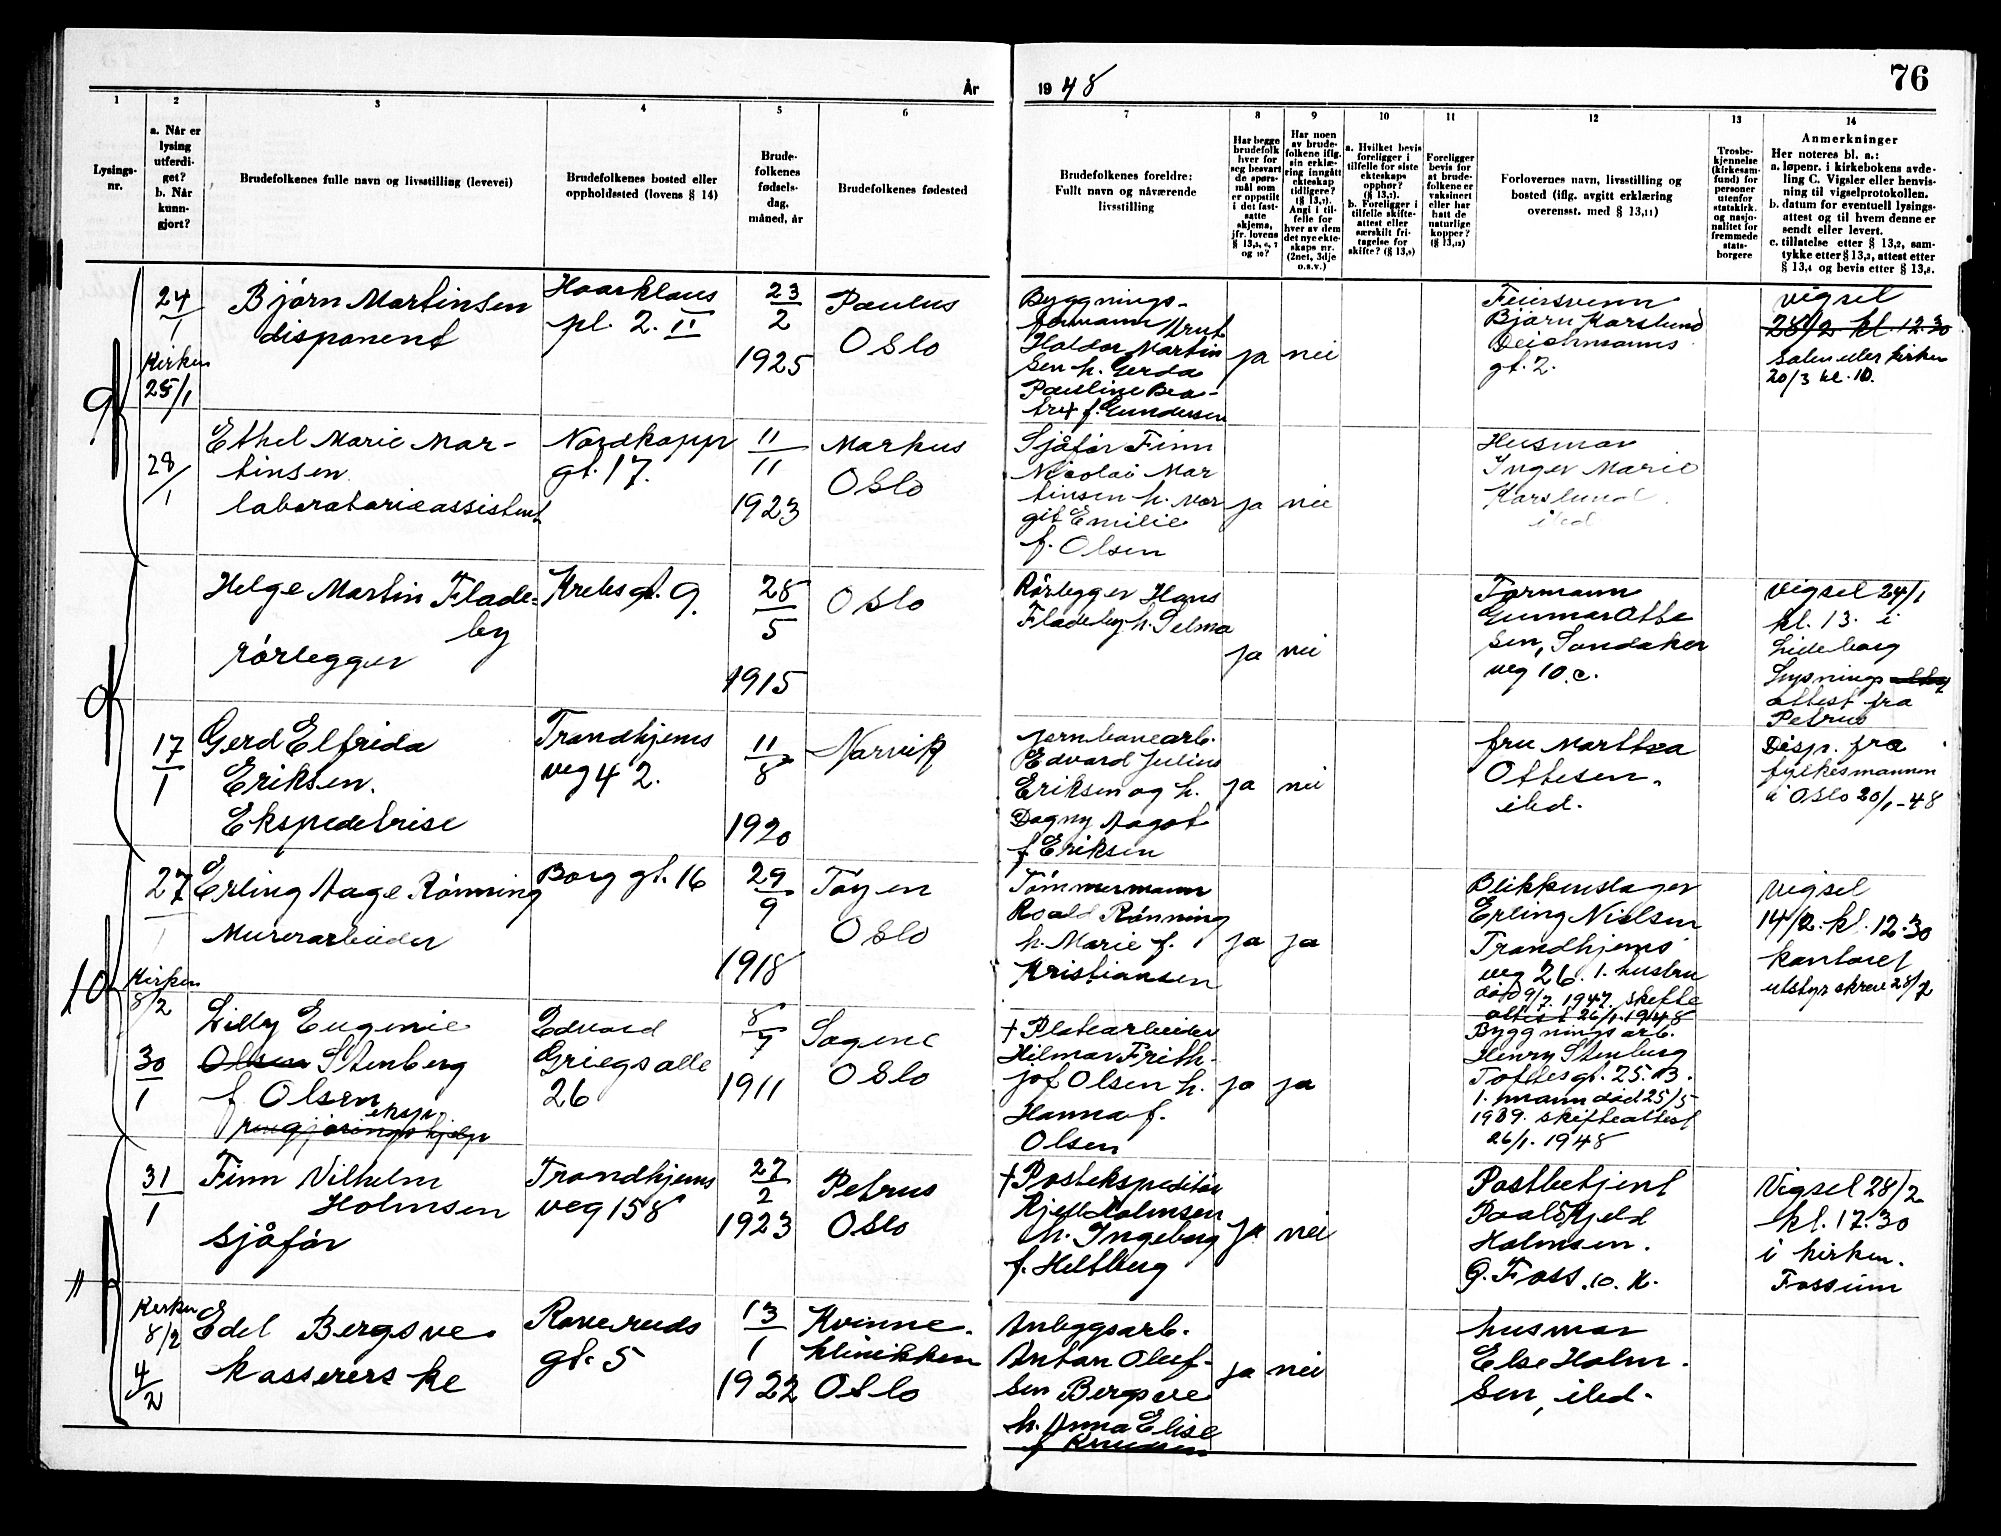 År
19 48
76
1
2
3
4
5
6
7
8
9
10
11
12
13
14
Lysings-
nr.
a. Når er
lysing
utferdi-
get?
b. Når
kunn-
gjort?
Brudefolkenes fulle navn og livsstilling (levevei)
Brudefolkenes bosted eller
oppholdssted (lovens § 14)
Brude-
folkenes
fødsels-
dag,
måned, år
Brudefolkenes fødested
Brudefolkenes foreldre:
Fullt navn og nåværende
livsstilling
Har begge
brudefolk
hver for
seg besvart
de spørs-
mål som
er oppstilt
i det fast-
satte
skjema,
jfr. lovens
og 10?
Har noen
av brude-
folkene iflg.
sin erklæ-
ring inngått
ekteskap
tidligere?
(§ 13,7).
Angi i til-
felle for
hver av dem
det nye ekte-
skaps nr.
(2net, 3dje
o.s.v.)
a. Hvilket bevis
foreligger i
tilfelle for siste
ekteskaps
opphør?
(§ 13,7).
b. Foreligger i
tilfelle skifte-
attest eller
særskilt fri-
tagelse for
skifte? (§ 13,9)
Foreligger
bevis for
at brude-
folkene er
vaksinert
eller har
hatt de
naturlige
kopper?
(§ 13,12)
Forlovernes navn, livsstilling og
bosted (iflg. avgitt erklæring
overensst. med § 13,11)
Trosbe-
kjennelse
(kirkesam-
fund) for
personer
utenfor
statskirk.
og nasjo-
nalitet for
fremmede
stats-
borgere
Anmerkninger
Her noteres bl. a.:
a. løpenr. i kirkebokens avde-
ling C. Vigsler eller henvis-
ning til vigselprotokollen.
b. datum for eventuell lysings-
attest og til hvem denne er
sendt eller levert.
c. tillatelse etter § 13,2, sam-
tykke etter § 13,3, attest etter
§ 13,4 og bevis etter § 13,8.
9
24/1
Kirken
25/1
Bjørn Martinsen
disponent
Haarklous
pl. 2. II
23/2
1925
Paulus
Oslo
Byggnings-
formann Knut
Haldor Martin
sen h. Gerda
Pauline Bea-
trix f. Gundersen
ja
nei
Feiersvenn
Bjarn Karslund
Deichmanns
gt. 2.
vigsel
28/2 kl. 12.30
Salen eller kirken
20/3 kl. 10.
28/1
Ethel Marie Mar-
tinsen
laboratorieassistent
Nordkapp
gt. 17.
11/11
1923
Markus
Oslo
Sjåfør Finn
Nicolai Mar
tinsen h. Mar
git Emilie
f. Olsen
ja
nei
Husmor
Inger Marie
Karslund
ibd
9
Helge Martin Flade-
by
rørlegger
Krebsgt. 9.
28/5
1915
Oslo
Rørlegger Hans
Fladeby h. Selma
ja
nei
Formann
Gunnar Otte
sen, Sandaker
veg 10 c.
vigsel 24/1
kl. 13. i
Lideborg
Lysnings
attest fra
Petrus
17/1
Gerd Elfrida
Eriksen.
Ekspeditrise
Trondhjems
veg 42.
11/8
1920
Narvik
jernbanearb.
Edvard Julius
Eriksen og h.
Dagny Aagot
f Eriksen
ja
nei
fru Marthea
Ottesen.
ibd.
Disp. fra
fylkesmannen
i Oslo 20/1-48
10
27/1
Kirken
8/2
Erling Aage Rønning
Murerarbeider
Borg gt. 16
29/9
1918
Tøyen
Oslo
Tømmermann
Roald Rønning
h. Marie f.
Kristiansen
ja
ja
Blikkenslager
Erling Nielsen
Trondhjems
veg 26. 1. hustru
død 9/7. 1947. skifte
attest 26/1.1948
Vigsel
14/2. kl. 12.30
kontoret
utstyr skrevet 28/2
30/1
Lilly Eugenie
Olsen Stenberg
f. Olsen
eksp.
rengjøringshjelp
Edvard
Griegs alle
26
8/7
1911
Sagene
Oslo
† Platearbeider
Hilmar Frith-
jof Olsen h.
Hanna f.
Olsen
ja
ja
Byggningsarb.
Henry Stenberg
Toftesgt. 25. B.
1. mann død 25/5
1939. skifteattest
26/1. 1948
11
31/1
Finn Vilhelm
Holmsen
sjåfør
Trondhjems
veg 158
27/2
1923
Petrus
Oslo
† Postekspeditør
Kjell Holmsen
h. Ingeborg
f. Heltberg
ja
nei
Postbetjent
Paal Kjeld
Holmsen.
G. Foss. 10. K.
Vigsel 28/2
kl. 17.30
i kirken.
Fossum
Kirken
8/2
4/2
Edel Bergsve
kassererske
Raveruds
gt. 5
13/1
1922
Kvinne-
klinikken
Oslo
Anleggsarb.
Anton Oluf-
sen Bergsve
h. Anna Elise
f Knudsen
ja
nei
husmor
Else Holm-
sen, ibd.